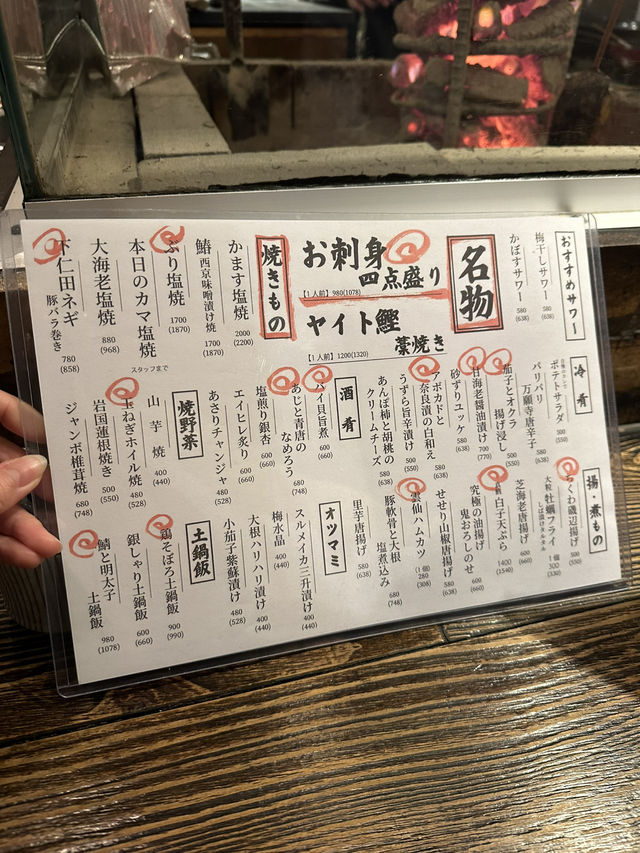 おすすめサワー
梅干しサワー 580(638)
かぼすサワー 580(638)
名物
お刺身四点盛り
【1人前】980(1078)
ヤイト鰹
藁焼き
【1人前】1200(1320)
焼きもの
かます塩焼 2000(2200)
鰆 西京味噌漬け焼 1700(1870)
ぶり塩焼 1700(1870)
本日のカマ塩焼
スタッフまで
大海老塩焼 880(968)
下仁田ネギ
豚バラ巻き 780(858)
冷肴
ポテトサラダ 500(550)
パリパリ
万願寺唐辛子 580(638)
茄子とオクラ
揚げ浸し 500(550)
甘海老醤油漬け 700(770)
砂ずりユッケ 580(638)
アボカドと
奈良漬の白和え 580(638)
うずら旨辛漬け 500(550)
あんぽ柿と胡桃の
クリームチーズ 580(638)
酒肴
バイ貝旨煮 600(660)
あじと青唐の
なめろう 680(748)
塩煎り銀杏 600(660)
エイヒレ炙り 600(660)
あさりチャンジャ 480(528)
焼野菜
山芋焼 400(440)
玉ねぎホイル焼 480(528)
岩国蓮根焼き 500(550)
ジャンボ椎茸焼 680(748)
揚・煮もの
ちくわ磯辺揚げ 500(550)
大粒 牡蠣フライ
しば漬けタルタル 1個 300(330)
芝海老唐揚げ 600(660)
白子天ぷら 1400(1540)
究極の油揚げ
鬼おろしのせ 600(660)
せせり山椒唐揚げ 580(638)
雲仙ハムカツ (1個) 280(308)
豚軟骨と大根
塩煮込み 680(748)
里芋唐揚げ 580(638)
オツマミ
スルメイカ三升漬け 400(440)
梅水晶 400(440)
大根ハリハリ漬け 400(440)
小茄子紫蘇漬け 480(528)
土鍋飯
鶏そぼろ土鍋飯 900(990)
銀しゃり土鍋飯 600(660)
鯖と明太子
土鍋飯 980(1078)